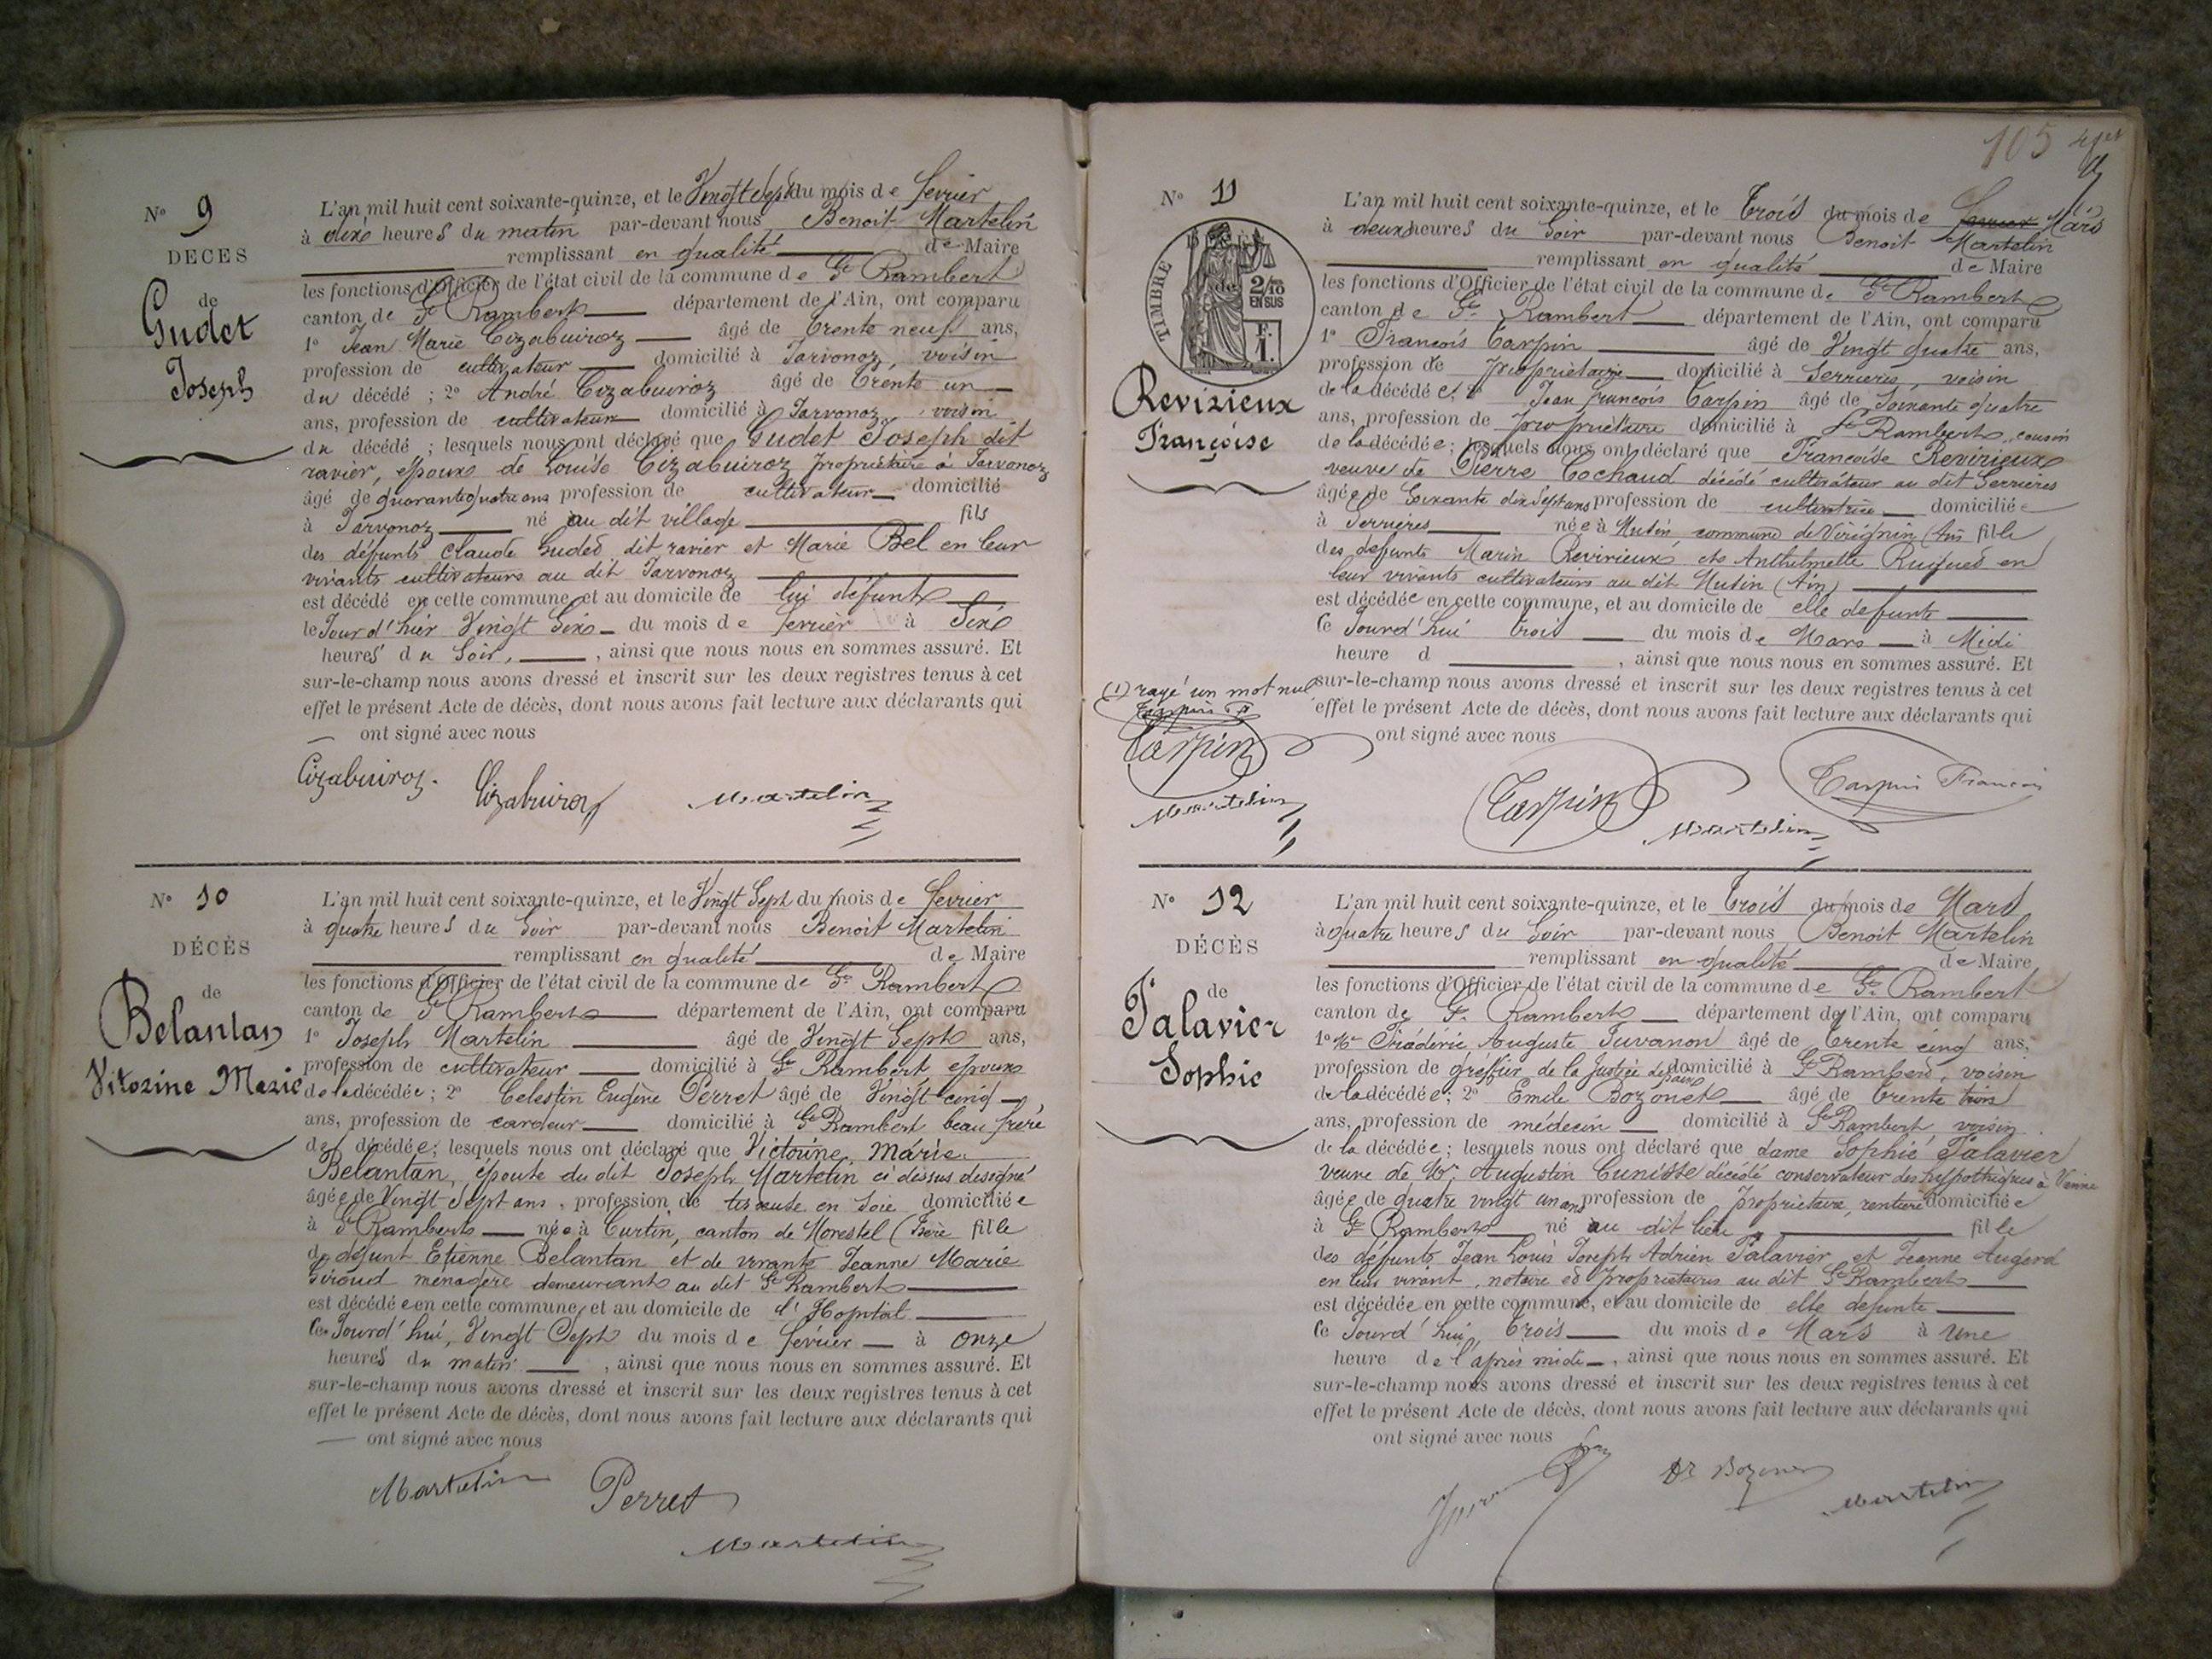 N° 9
DÉCÈS
de
Gudet
Joseph
L'an mil huit cent soixante-quinze, et le Vingt Sept du mois de fevrier
à dix heures du matin par-devant nous Benoit Martelin
remplissant en qualité de Maire
les fonctions d'Officier de l'état civil de la commune de St Rambert
canton de St Rambert département de l'Ain, ont comparu
1° Jean Marie Cizabuiroz âgé de trente neuf ans,
profession de cultivateur domicilié à Javonoz, voisin
du décédé ; 2° André Cizabuiroz âgé de trente un
ans, profession de cultivateur domicilié à Javonoz, voisin
du décédé ; lesquels nous ont déclaré que Gudet Joseph dit
ravier, epoux de Louise Cizabuiroz propriétaire à Javonoz
âgé de quarante quatre ans profession de cultivateur domicilié
à Javonoz né au dit village fils
des défunts Claude Gudet dit ravier et Marie Bel en leur
vivants cultivateurs au dit Javonoz
est décédé en cette commune, et au domicile de lui défunt
le Jour d'hier Vingt Six du mois de fevrier à Six
heures du Soir, , ainsi que nous nous en sommes assuré. Et
sur-le-champ nous avons dressé et inscrit sur les deux registres tenus à cet
effet le présent Acte de décès, dont nous avons fait lecture aux déclarants qui
ont signé avec nous
Cizabuiroz. Cizabuiroz Martelin
N° 10
DÉCÈS
de
Belantan
Vitorine Marie
L'an mil huit cent soixante-quinze, et le Vingt Sept du mois de fevrier
à quatre heures du Soir par-devant nous Benoit Martelin
remplissant en qualité de Maire
les fonctions d'Officier de l'état civil de la commune de St Rambert
canton de St Rambert département de l'Ain, ont comparu
1° Joseph Martelin âgé de Vingt Sept ans,
profession de cultivateur domicilié à St Rambert epoux
de la décédée ; 2° Celestin Eugène Perret âgé de Vingt cinq
ans, profession de cardeur domicilié à St Rambert beau frère
de décédée ; lesquels nous ont déclaré que Victorine Marie
Belantan, épouse du dit Joseph Martelin ci dessus designé
âgée de Vingt Sept ans, profession de tisseuse en Soie domiciliée
à St Rambert née à Curtin, canton de Morestel (Isère fille
de défunt Etienne Belantan et de vivante Jeanne Marie
Giroud menagère demeurant au dit St Rambert
est décédée en cette commune, et au domicile de l'Hopital
Ce Jourd'hui, Vingt Sept du mois de fevrier à onze
heures du matin , ainsi que nous nous en sommes assuré. Et
sur-le-champ nous avons dressé et inscrit sur les deux registres tenus à cet
effet le présent Acte de décès, dont nous avons fait lecture aux déclarants qui
ont signé avec nous
Martelin Perret
Martelin
105
N° 11
TIMBRE
2/10
EN SUS
F.
1.
de
Revirieux
Françoise
L'an mil huit cent soixante-quinze, et le trois du mois de fevrier Mars
à deux heures du Soir par-devant nous Benoit Martelin
remplissant en qualité de Maire
les fonctions d'Officier de l'état civil de la commune de St Rambert
canton de St Rambert département de l'Ain, ont comparu
1° Francois Carpin âgé de Vingt quatre ans,
profession de propriétaire domicilié à Serrières, voisin
de la décédée ; 2° Jean francois Carpin âgé de Soixante quatre
ans, profession de propriétaire domicilié à St Rambert, cousin
de la décédée ; lesquels nous ont déclaré que Francoise Revirieux
veuve de Pierre Cochaud décédé cultivateur au dit Serrieres
âgée de Soixante dix Sept ans profession de cultivatrice domiciliée
à Serrières née à Mutin, commune de Virignin (Ain fille
des defunts Marin Revirieux et Anthelmette en
leur vivants cultivateurs au dit Mutin (Ain)
est décédée en cette commune, et au domicile de elle defunte
Ce Jourd'hui trois du mois de Mars à Midi
heure d , ainsi que nous nous en sommes assuré. Et
sur-le-champ nous avons dressé et inscrit sur les deux registres tenus à cet
effet le présent Acte de décès, dont nous avons fait lecture aux déclarants qui
ont signé avec nous
(1) rayé un mot nul
Carpin F
Carpin
Martelin
Carpin Martelin Carpin Francois
N° 12
DÉCÈS
de
Palavier
Sophie
L'an mil huit cent soixante-quinze, et le trois du mois de Mars
à quatre heures du Soir par-devant nous Benoit Martelin
remplissant en qualité de Maire
les fonctions d'Officier de l'état civil de la commune de St Rambert
canton de St Rambert département de l'Ain, ont comparu
1° Mr Frédéric Auguste Juvanon âgé de trente cinq ans,
profession de greffier de la Justice de paix domicilié à St Rambert, voisin
de la décédée ; 2° Emile Bozonet âgé de trente trois
ans, profession de médecin domicilié à St Rambert, voisin
de la décédée ; lesquels nous ont déclaré que dame Sophie Palavier
veuve de Mr Augustin Cunisse décédé conservateur des hypothèques à Vienne
âgée de quatre vingt un ans profession de Propriétaire, rentière domiciliée
à St Rambert né au dit lieu fille
des défunts Jean Louis Joseph Adrien Palavier et Jeanne Augerd
en leur vivant, notaire et propriétaires au dit St Rambert
est décédée en cette commune, et au domicile de elle defunte
Ce Jourd'hui, trois du mois de Mars à Une
heure de l'après midi , ainsi que nous nous en sommes assuré. Et
sur-le-champ nous avons dressé et inscrit sur les deux registres tenus à cet
effet le présent Acte de décès, dont nous avons fait lecture aux déclarants qui
ont signé avec nous
Dr Bozonet Martelin